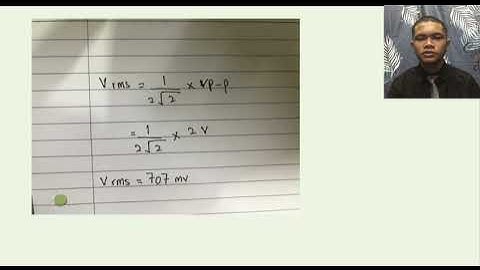 Vrms = 1/2√2 × Vp-p
= 1/2√2 × 2 V
Vrms = 707 mV